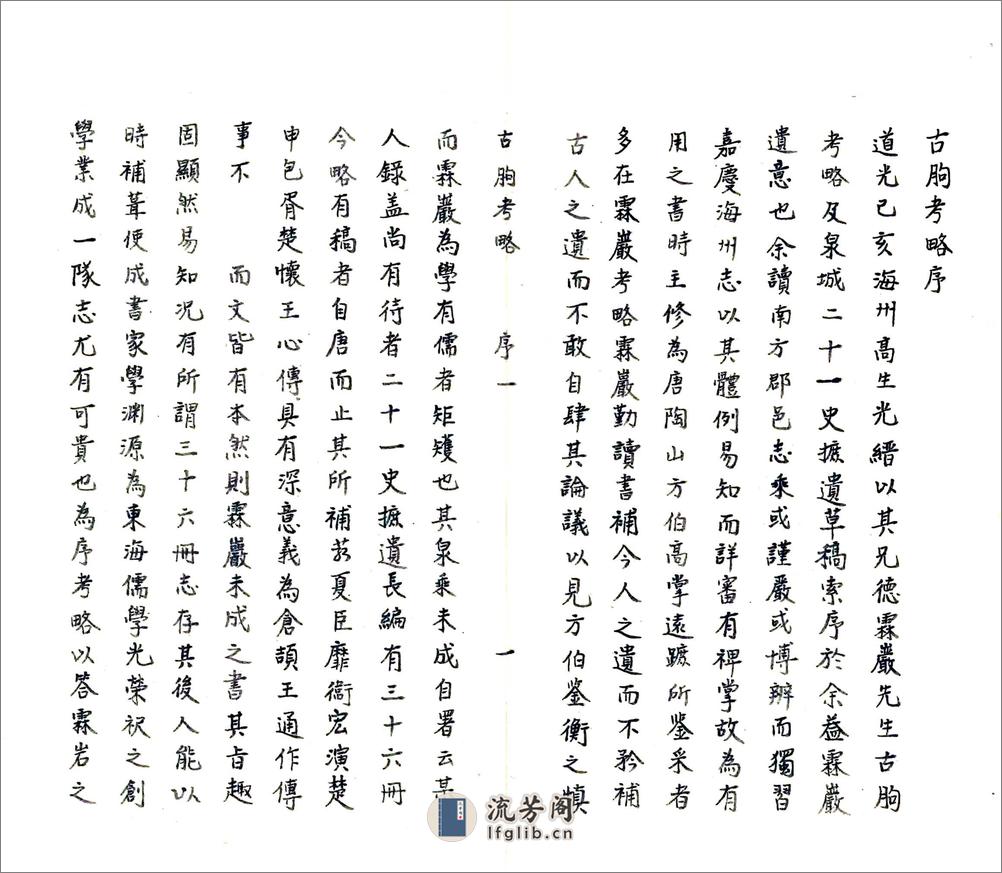 古朐考略序
道光己亥海州高生光縉以其兄德霖嚴先生古朐
考略及泉城二十一史摭遺草稿索序於余葢霖嚴
遺意也余讀南方郡邑志乘或謹嚴或博辨而獨習
嘉慶海州志以其體例易知而詳審有裨掌故為有
用之書時主修為唐陶山方伯高掌遠蹠所鉴采者
多在霖嚴考略霖嚴勤讀書補今人之遺而不矜補
古人之遺而不敢自肆其論議以見方伯鉴衡之慎
古朐考略 序一 一
而霖嚴為學有儒者矩矱也其泉乘未成自署云某
人錄盖尚有待者二十一史摭遺長編有三十六冊
今略有稿者自唐而止其所補若夏臣靡衞宏演楚
申包胥楚懷王心傳具有深意義為倉頡王通作傳
事不 而文皆有本然則霖嚴未成之書其旨趣
固顯然易知况有所謂三十六冊志存其後人能以
時補葺使成書家學渊源為東海儒學光荣祝之創
學業成一隊志尤有可貴也為序考略以答霖岩之
流芳阁
lfglib.cn